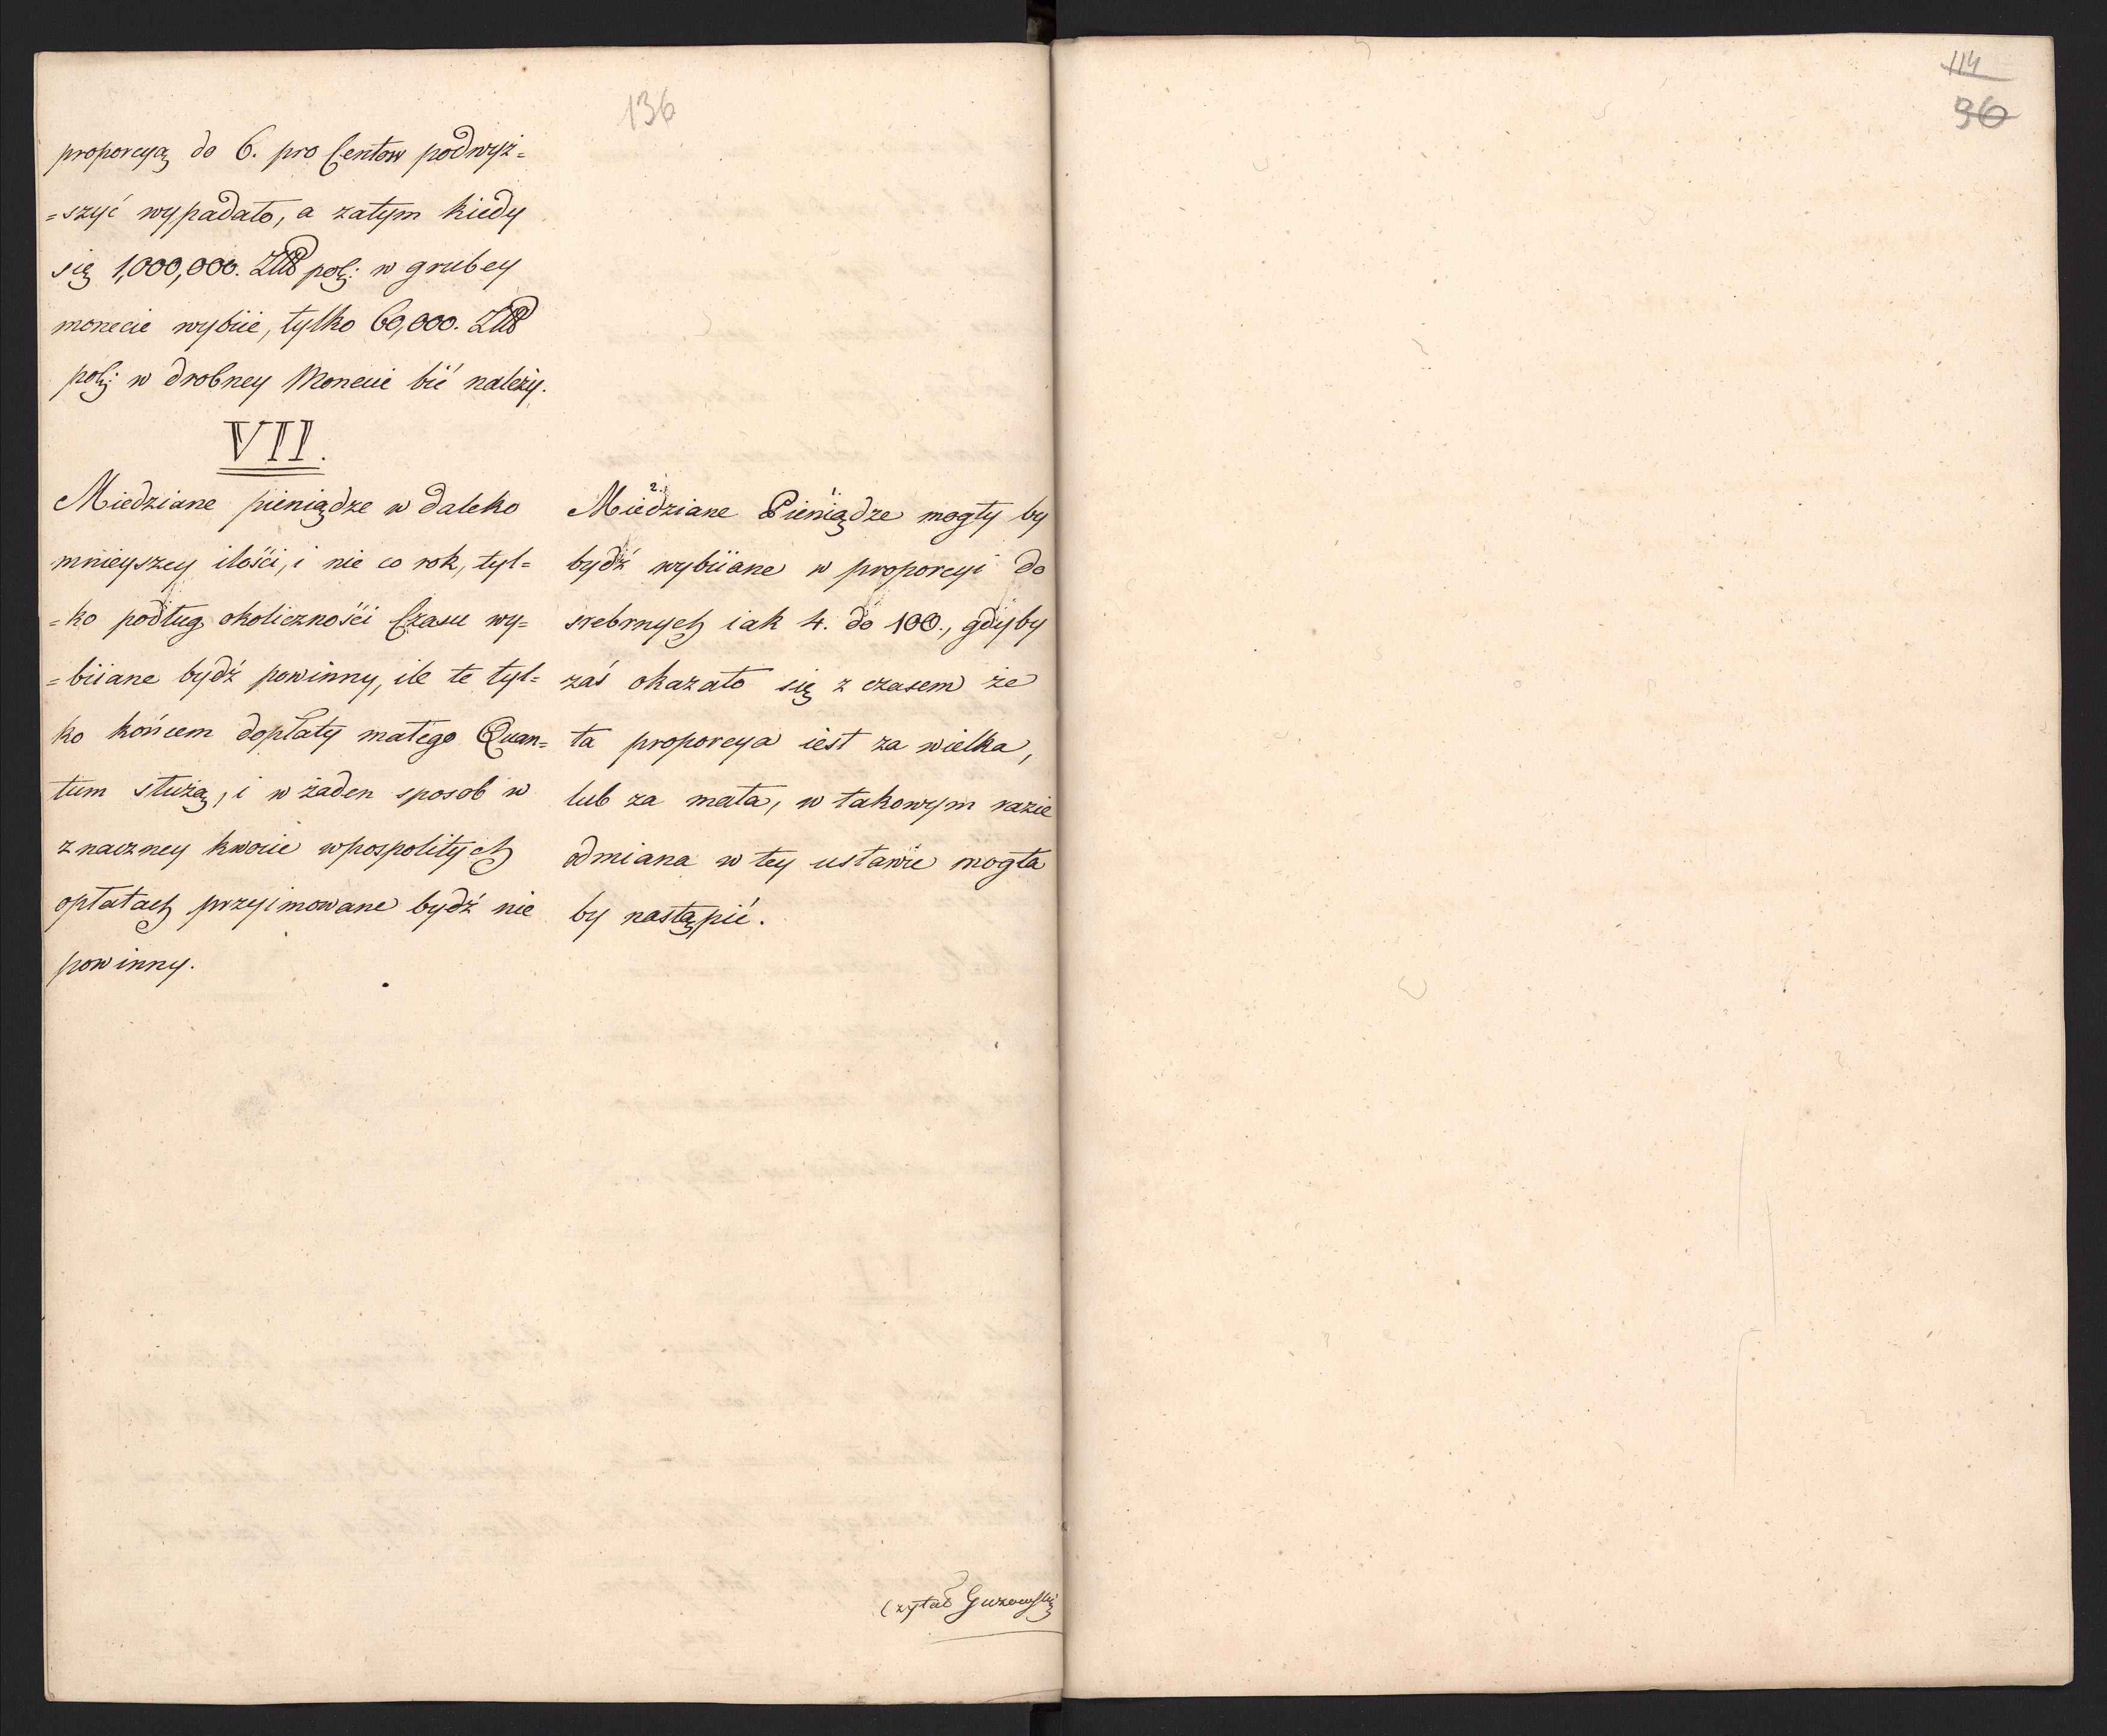 136
proporcyą do 6. pro Centow podwyż=
=szyć wypadało, a zatym kiedy
się 1,000,000. Złłł pol: w grubey
monecie wybiie, tylko 60,000. Złłł
pol: w drobney Monecie bić należy.
VII.
Miedziane pieniądze w daleko
mnieyszey ilości, i nie co rok, tyl=
=ko podług okoliczności Czasu wy=
=biiane bydź powinny, ile te tyl=
ko końcem dopłaty małego Quan=
tum służą, i w żaden sposob w
znaczney kwocie wpospolitych
opłatach przyimowane bydź nie
powinny.
2. 1.
Miedziane Pieniądze mogły by
bydź wybiiane w proporcyi do
srebrnych iak 4. do 100., gdyby
zaś okazało się z czasem że
ta proporcya iest za wielka,
lub za mała, w takowym razie
odmiana w tey ustawie mogła
by nastąpić.
Czytał Guzowski
114
96